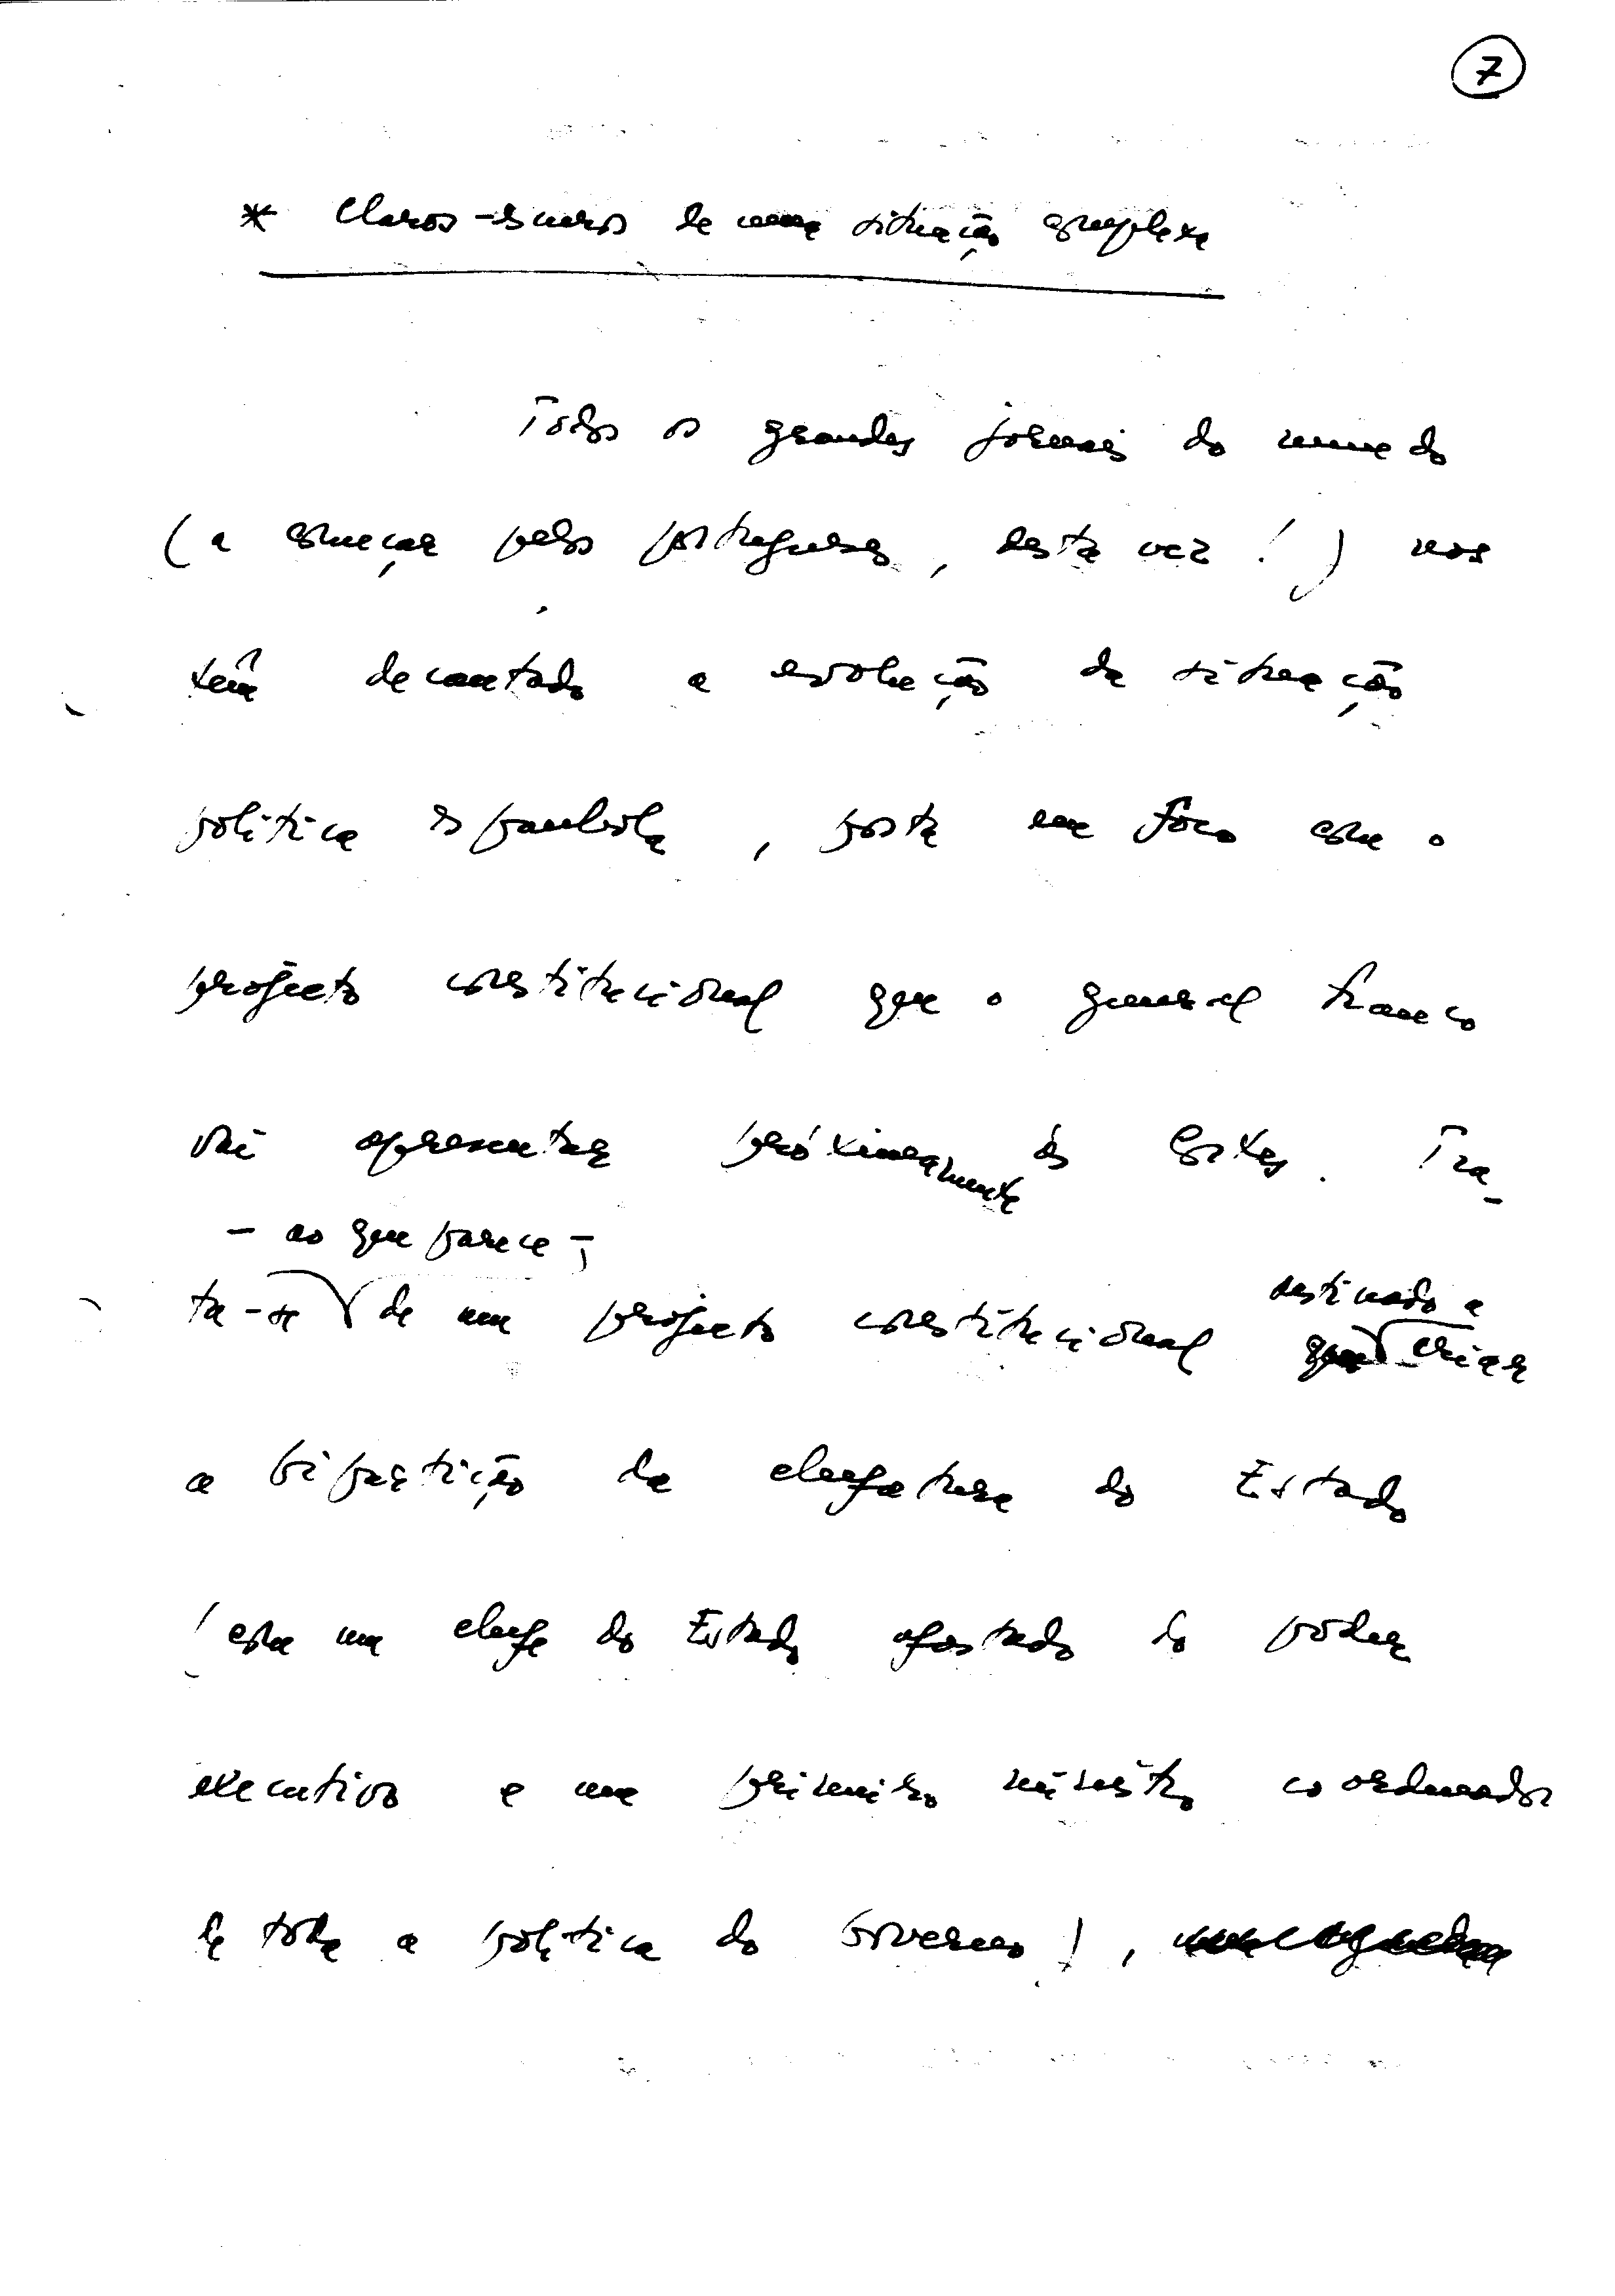 7
* Claros-escuros de uma situação complexa
Todos os grandes jornais do mundo
(a começar pelos portugueses, desta vez!) nos
têm decantado a evolução da situação
política espanhola, posta em foco com o
projecto constitucional que o general Franco
vai apresentar próximamente às Cortes. Tra-
- ao que parece -,
ta-se de um projecto constitucional destinado a criar
a bipartição da chefatura do Estado
(com um chefe do Estado afastado do poder
executivo e um primeiro ministro coordenador
de toda a política do Governo),